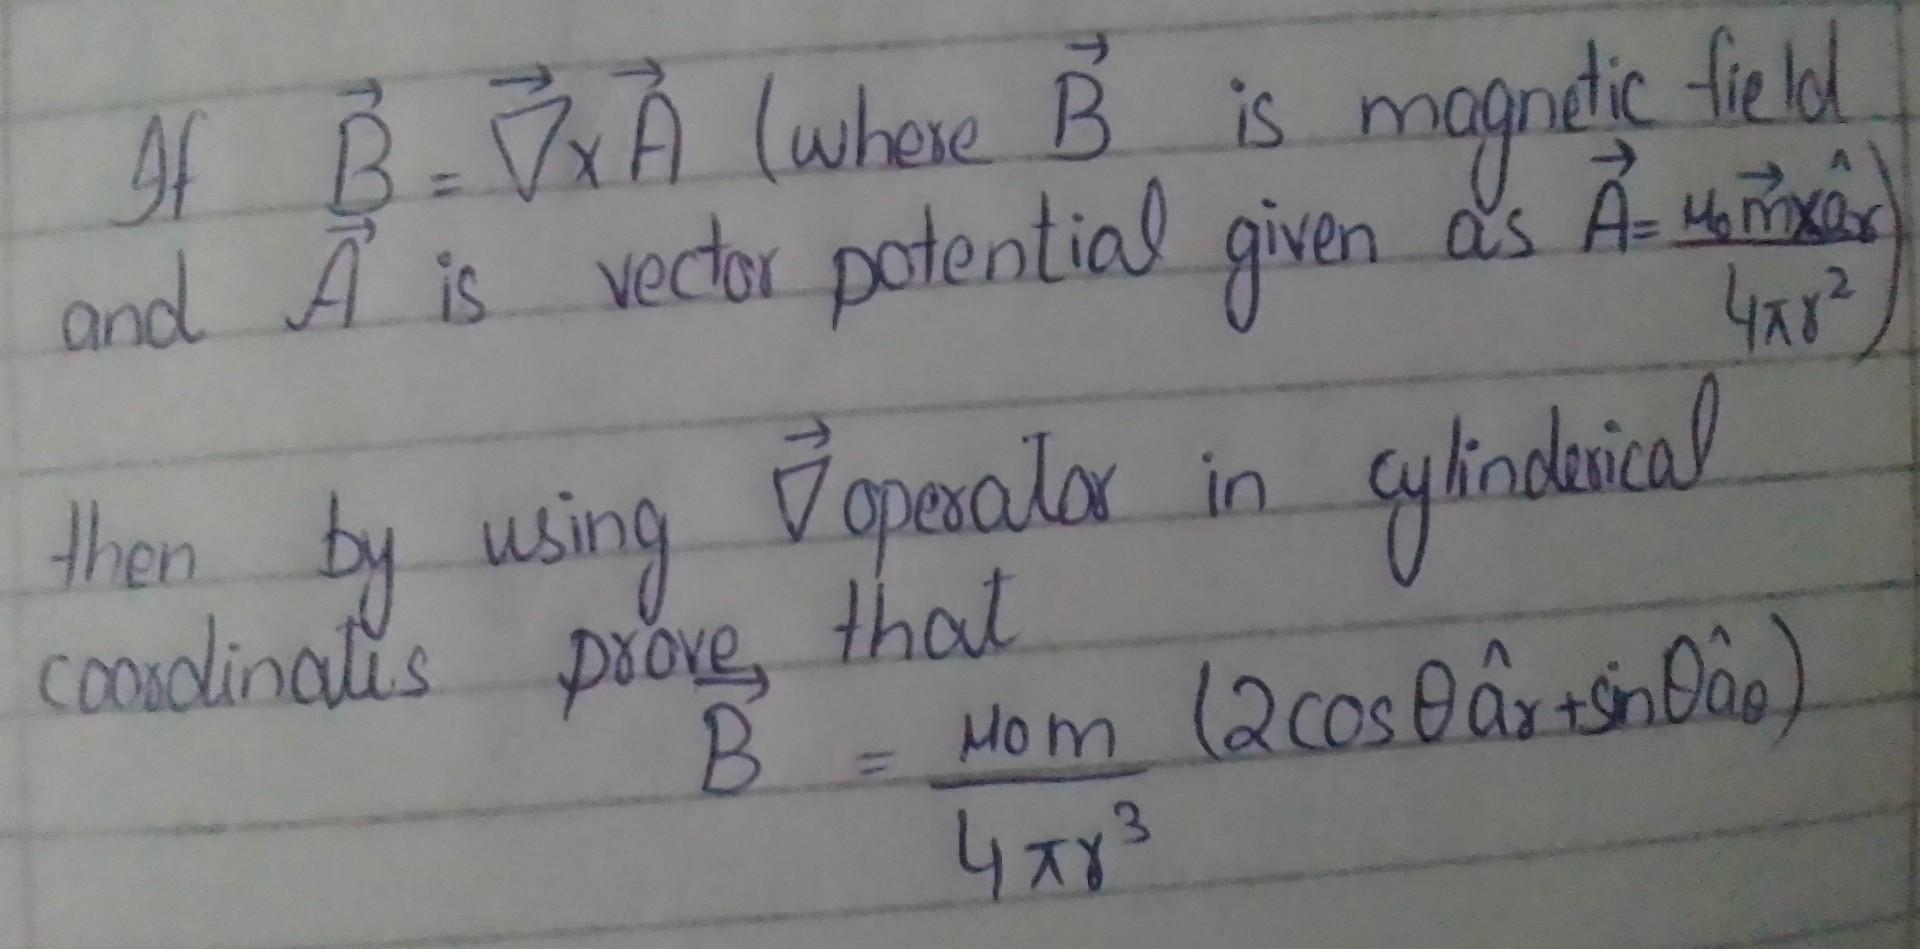 If B⃗ = ∇⃗ x A⃗ (where B⃗ is magnetic field
and A⃗ is vector potential given as A⃗ = μ₀ m⃗ x âr / 4πr²)
then by using ∇⃗ operator in cylinderical
coordinates prove that
B⃗ = μ₀ m / 4πr³ (2 cos θ âr + sin θ âθ)